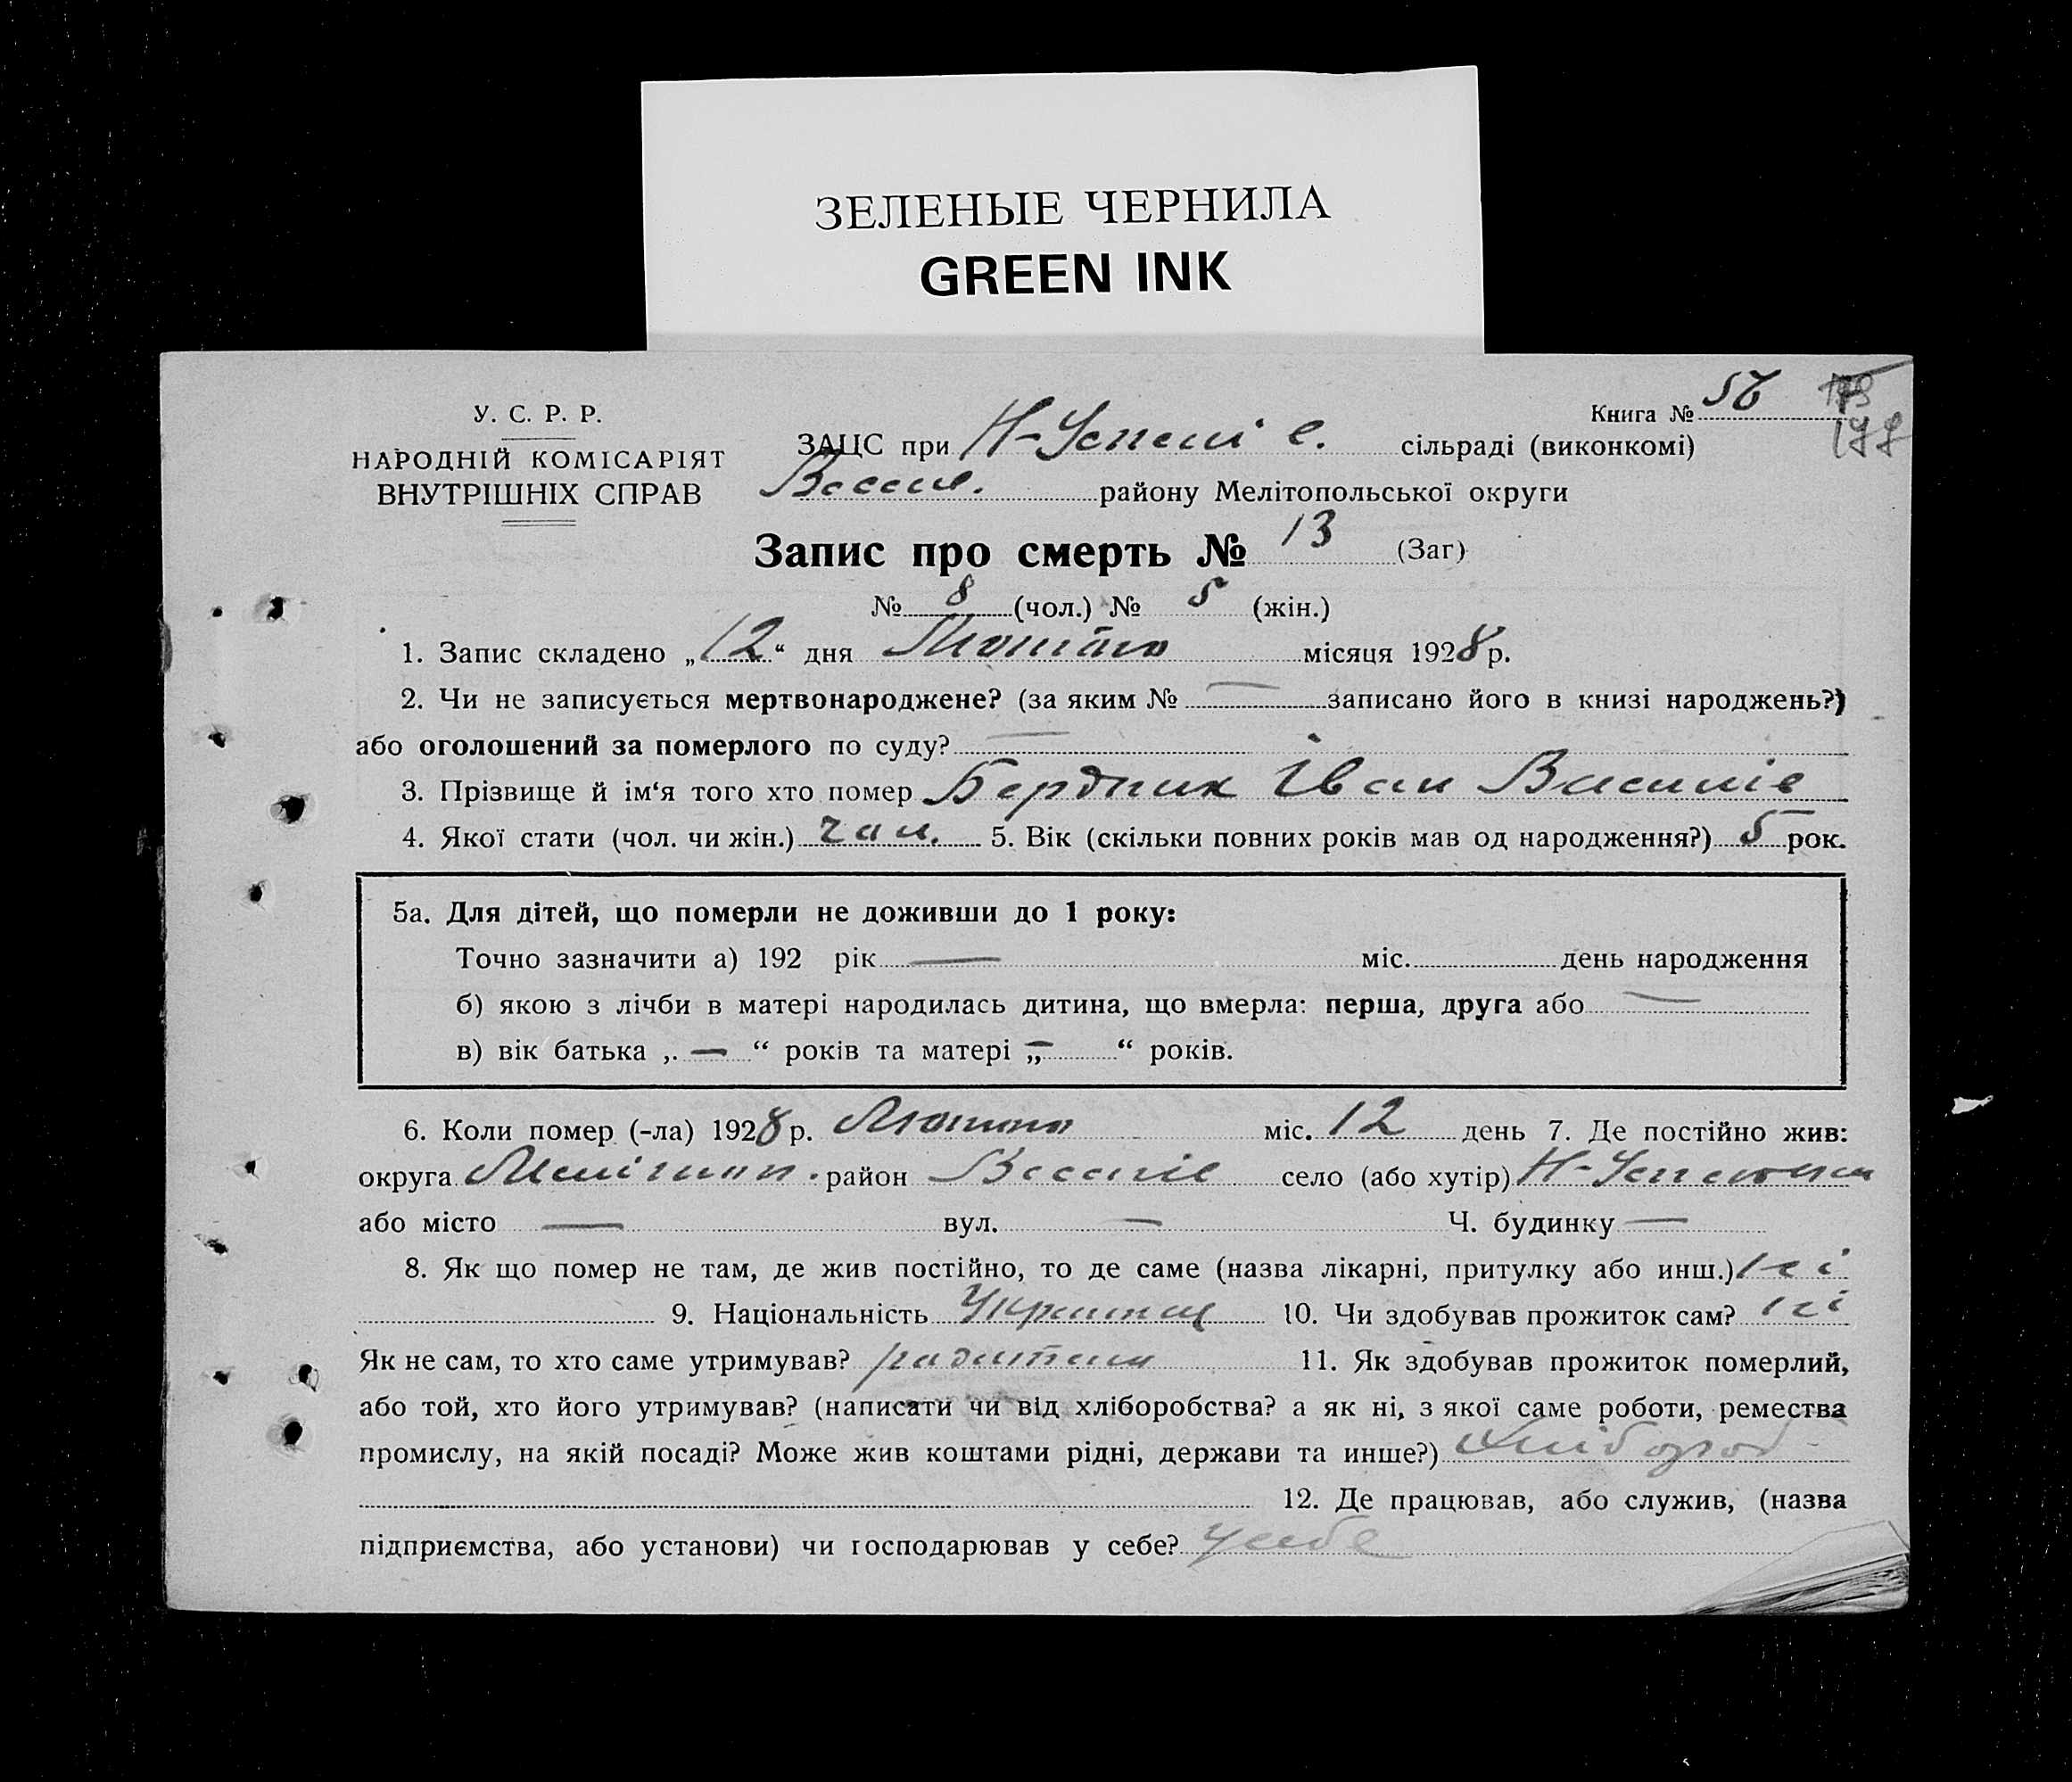 ЗЕЛЕНЫЕ ЧЕРНИЛА
GREEN INK
У. С. Р. Р.
НАРОДНІЙ КОМІСАРІЯТ
ВНУТРІШНІХ СПРАВ
Книга № 56
ЗАЦС при Н-Успені с. сільраді (виконкомі)
Весел. району Мелітопольської округи
Запис про смерть № 13 (Заг)
№ 8 (чол.) № 5 (жін.)
1. Запис складено „12“ дня Лютого місяця 1928 р.
2. Чи не записується мертвонароджене? (за яким № — записано його в книзі народжень?)
або оголошений за померлого по суду? —
3. Прізвище й ім‘я того хто помер Бердник Іван Василів
4. Якої стати (чол. чи жін.) чол. 5. Вік (скільки повних років мав од народження?) 5 рок.
5а. Для дітей, що померли не доживши до 1 року:
Точно зазначити а) 192 рік — міс. день народження
б) якою з лічби в матері народилась дитина, що вмерла: перша, друга або —
в) вік батька „ — “ років та матері „ — “ років.
6. Коли помер (-ла) 1928 р. Лютого міс. 12 день 7. Де постійно жив:
округа Мелітоп. район Веселів село (або хутір) Н-Успенка
або місто — вул. — Ч. будинку —
8. Як що помер не там, де жив постійно, то де саме (назва лікарні, притулку або инш.) ні
9. Національність Українец 10. Чи здобував прожиток сам? ні
Як не сам, то хто саме утримував? родители 11. Як здобував прожиток померлий,
або той, хто його утримував? (написати чи від хліборобства? а як ні, з якої саме роботи, ремества
промислу, на якій посаді? Може жив коштами рідні, держави та инше?) Хлібороб
12. Де працював, або служив, (назва
підприємства, або установи) чи господарював у себе? у себе